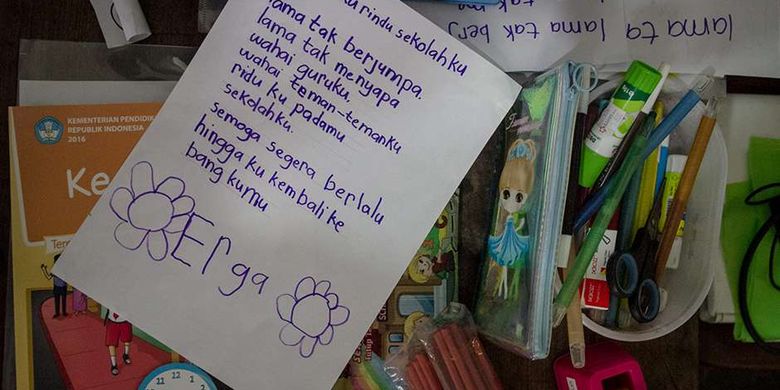 ku rindu sekolahku
lama tak berjumpa.
lama tak menyapa
wahai guruku,
wahai teman-temanku
ridu ku padamu
sekolahku.
semoga segera berlalu
hingga ku kembali ke
bang kumu
Erga
lama ta lama tak berj
KEMENTERIAN PENDIDIK
REPUBLIK INDONESIA
2016
Ke